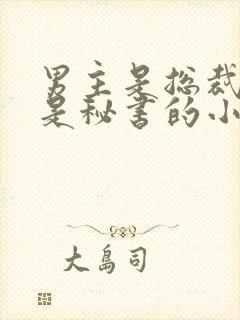 男主是总裁
是秘书的小
大岛司